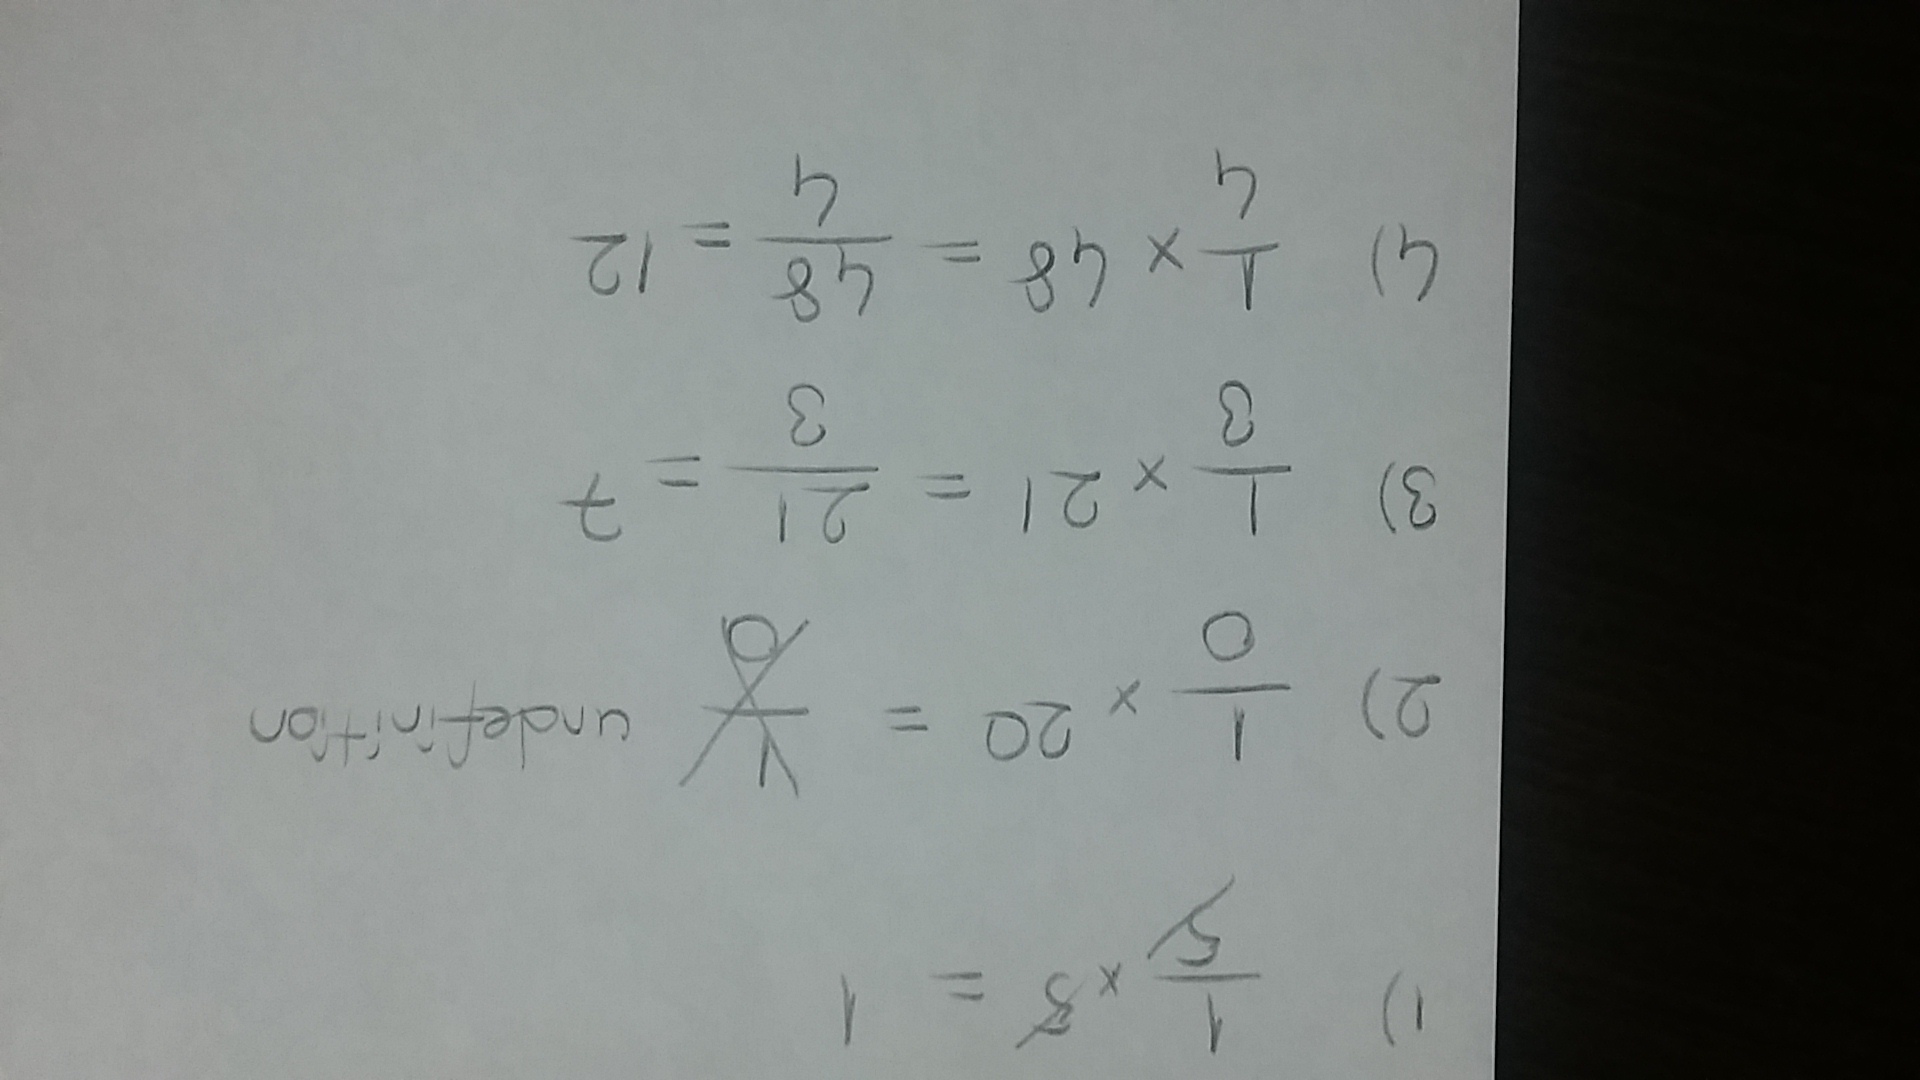 1) 1/5 × 5 = 1
2) 1/0 × 20 = 1/0 undefinition
3) 1/3 × 21 = 21/3 = 7
4) 1/4 × 48 = 48/4 = 12